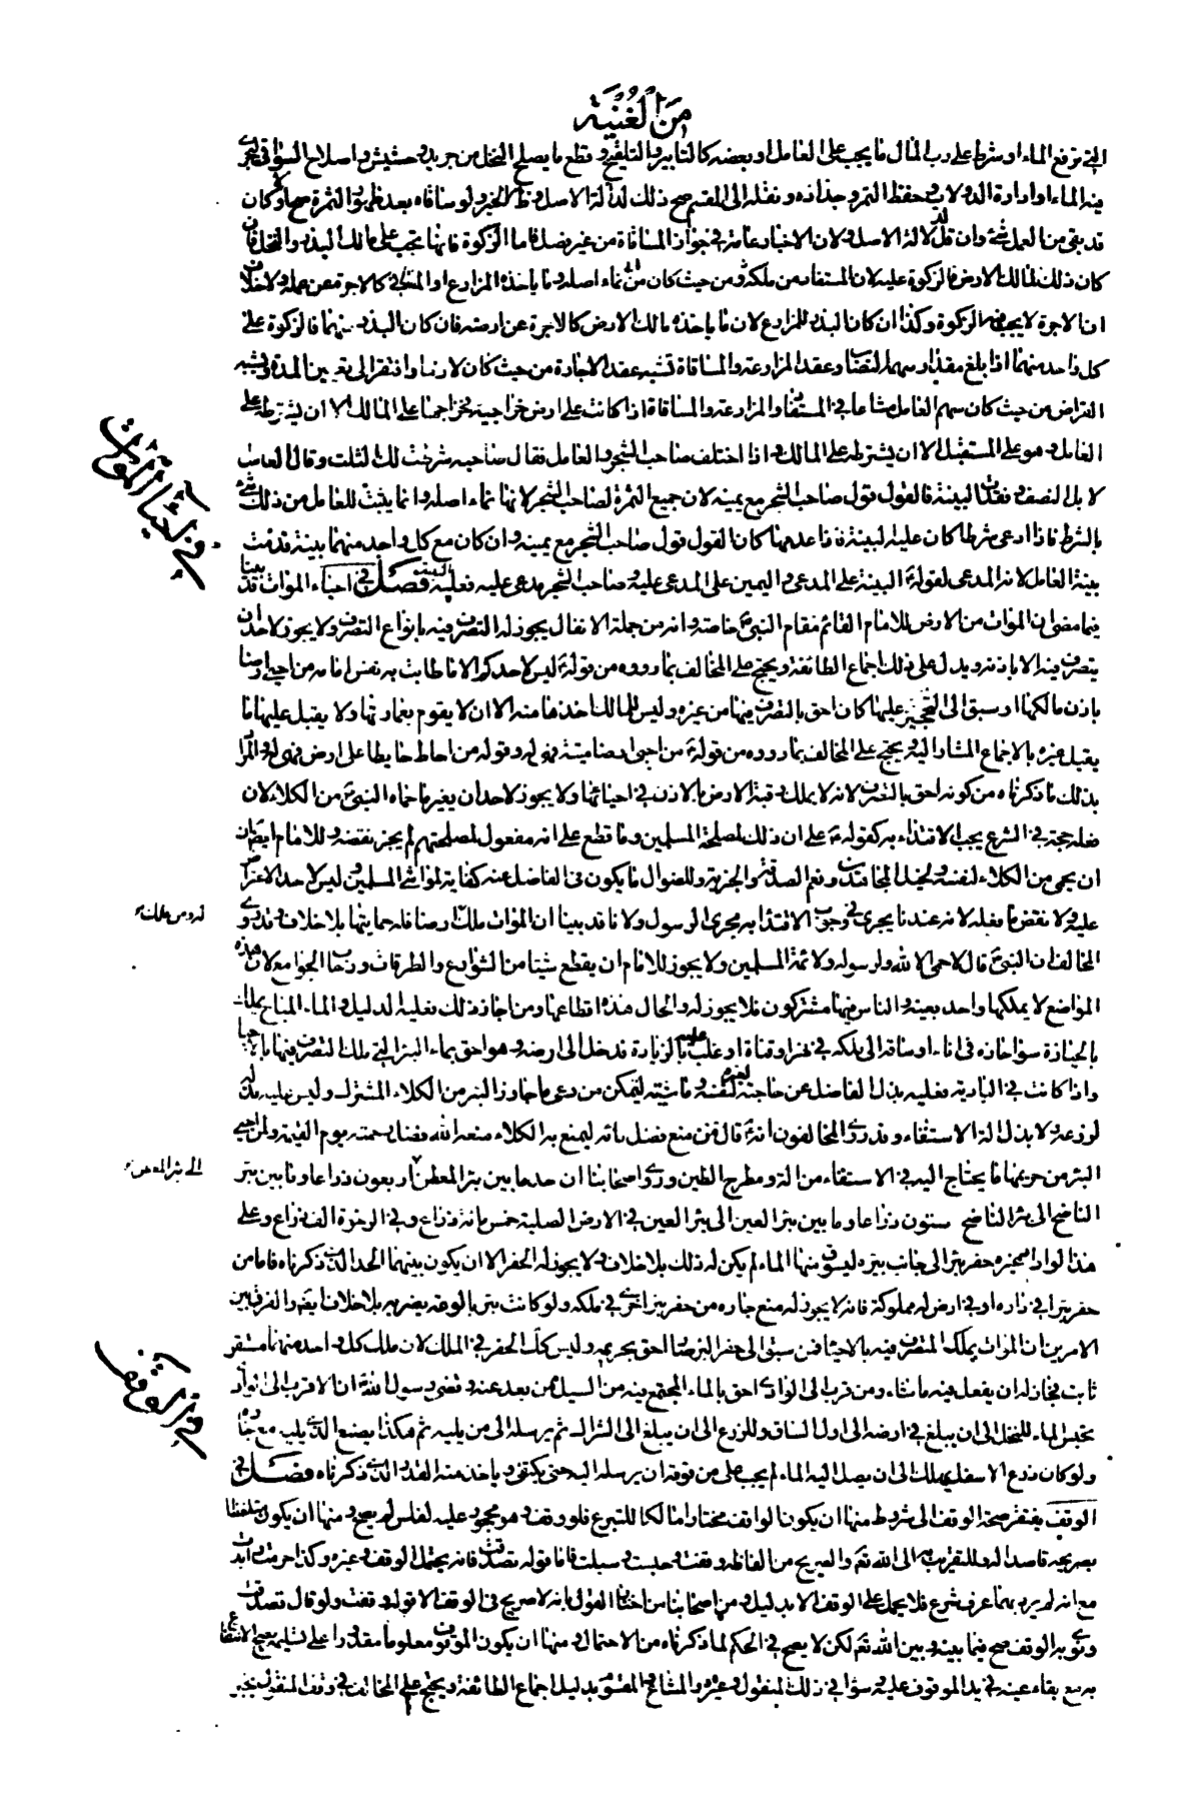 من الغنية
التي ترفع الماء او شرط على رب المال ما يجب على العامل او بعضه كالتأبير والتلقيح وقطع ما يصلح النخل من جريد وحشيش واصلاح السواقي ليجري
فيه الماء او ادارة الدولاب وحفظ التمر وجذاذه ونقله الى المقسم صح ذلك لدلالة الاصل وظاهر الخبر ولو ساقاه بعد ظهور الثمرة صح اذا كان
قد بقي من العمل شئ وان قل لدلالة الاصل ولان الاخبار عامة في جواز المساقاة من غير فصل فاما الزكوة فانها تجب على مالك البذر والنخل فان
كان ذلك لمالك الارض فالزكوة عليه لان المستفاد من ملكه من حيث كان نماء اصله وما ياخذه المزارع او المساقي كالاجرة عن عمله ولا خلاف
ان الاجرة لا يجب فيه الزكوة وكذا ان كان البذر للمزارع لان ما ياخذه مالك الارض كالاجرة عن ارضه فان كان البذر بينهما فالزكوة على
كل واحد منهما اذا بلغ مقدار سهمه النصاب وعقد المزارعة والمساقاة تشبه عقد الاجارة من حيث كان لازما وافتقر الى تعيين المدة وتشبه
القراض من حيث كان سهم العامل مشاعا في المستفاد والمزارعة والمساقاة اذا كانت على ارض خراجية فخراجها على المالك الا ان يشترطه على
العامل وهو على المستقبل الا ان يشترطه على المالك واذا اختلف صاحب الشجر والعامل فقال صاحبه شرطت لك الثلث وقال العامل
لا بل النصف وفقدت البينة فالقول قول صاحب الشجر مع يمينه لان جميع الثمرة لصاحب الشجر لانها نماء اصله وانما يثبت للعامل من ذلك شئ
بالشرط فاذا ادعى شرطا كان عليه البينة فاذا عدمها كان القول قول صاحب الشجر مع يمينه وان كان مع كل واحد منهما بينة قدمت
بينة العامل لانه المدعي لقوله ع البينة على المدعي واليمين على المدعى عليه وصاحب الشجر مدعى عليه فعليه اليمين فصل في احياء الموات قد بينا
فيما مضى ان الموات من الارض للامام القائم مقام النبي ص خاصة وانه من جملة الانفال يجوز له التصرف فيه بانواع التصرف ولا يجوز لاحد ان
يتصرف فيه الا باذنه ويدل على ذلك اجماع الطائفة ويحتج على المخالف بما رووه من قوله ع ليس لاحدكم الا ما طابت به نفس امامه من احيى ارضا
باذن مالكها او سبق الى التحجير عليها كان احق بالتصرف فيها من غيره وليس للمالك اخذها منه الا ان لا يقوم بعمارتها ولا يقبل عليها ما
يقبل غيره بالاجماع المشار اليه ويحتج على المخالف بما رووه من قوله ع من احيى ارضا ميتة فهي له وقوله من احاط حايطا على ارض فهي له والمراد
بذلك ما ذكرناه من كونه احق بالتصرف لانه لا يملك رقبة الارض بالاذن في احيائها ولا يجوز لاحد ان يغير ما حماه النبي ص من الكلاء لان
فعله حجة في الشرع يجب الاقتداء به كقوله ع على ان ذلك لمصلحة المسلمين وما قطع على انه مفعول لمصلحتهم لم يجز نقضه وللامام ايضا
ان يحمي من الكلاء لنفسه ولخيل المجاهدين ونعم الصدقة والجزية وللضوال ما يكون في الفاضل عنه كفاية لمواشي المسلمين وليس لاحد الاعتراض
عليه ولا نقض ما يفعله لانه عندنا يجري في وجوب الاقتداء به مجرى الرسول ولانا قد بينا ان الموات ملك له حمايتها بلا خلاف وقد روى
المخالف ان النبي ص قال لا حمى الا لله ولرسوله ولائمة المسلمين ولا يجوز للامام ان يقطع شيئا من الشوارع والطرقات ورحاب الجوامع لان هذه
المواضع لا يملكها واحد بعينه والناس فيها مشتركون فلا يجوز له والحال هذه اقطاعها ومن اجاز ذلك فعليه الدليل والماء المباح يملك
بالحيازة سواء حازه في اناء او ساقه الى ملكه في نهر او قناة او غلب عليه بالزيادة فدخل الى ارضه وهو احق بماء البئر التي ملك التصرف فيها بالاحياء
واذا كانت في البادية فعليه بذل الفاضل عن حاجته لنفسه وماشيته لغيره ليتمكن من رعي ما جاور البئر من الكلاء المشترك وليس عليه بذله
لزرعه ولا بذل الة الاستقاء وقد روى المخالفون انه ع قال من منع فضل مائه ليمنع به الكلاء منعه الله فضل رحمته يوم القيمة ولمن احيى
البئر من حريمها ما يحتاج اليه في الاستقاء من الة ومطرح الطين وروى اصحابنا ان حد ما بين بئر المعطن اربعون ذراعا وما بين بئر
الناضح الى بئر الناضح ستون ذراعا وما بين بئر العين الى بئر العين في الارض الصلبة خمس مائة ذراع وفي الرخوة الف ذراع وعلى
هذا لو اراد غيره حفر بئر الى جانب بئره ليسوق منها الماء لم يكن له ذلك بلا خلاف ولا يجوز له الحفر الا ان يكون بينهما الحد الذي ذكرناه فاما من
حفر بئرا في داره او في ارض له مملوكة فانه لا يجوز له منع جاره من حفر بئر اخرى في ملكه ولو كانت بئر بالوعة يضر به بلا خلاف ايضا والفرق بين
الامرين ان الموات يملك المتصرف فيه بالاحياء فمن سبق الى حفر البئر صار احق بحريمه وليس كذلك الحفر في الملك لان ملك كل واحد منهما مستقر
ثابت فجاز له ان يفعل فيه ما شاء ومن قرب الى الوادي احق بالماء المجتمع فيه من السيل ممن بعد عنه وقضى رسول الله ص ان الاقرب الى الوادي
يحبس الماء للنخل الى ان يبلغ في ارضه الى اول الساق وللزرع الى ان يبلغ الى الشراك ثم يرسله الى من يليه ثم هكذا يصنع الذي يليه مع جاره
ولو كان زرع الاسفل يهلك الى ان يصل اليه الماء لم يجب على من فوقه ان يرسله اليه حتى يكتفي وياخذ منه القدر الذي ذكرناه فصل في
الوقف يفتقر صحة الوقف الى شروط منها ان يكون الواقف مختارا مالكا للتبرع فلو وقف وهو محجور عليه لفلس لم يصح ومنها ان يكون متلفظا
بصريحه قاصدا له وللتقرب به الى الله تعم والصريح من الفاظه وقفت وحبست وسبلت فاما قوله تصدقت فانه يحتمل الوقف وغيره وكذا حرمت وابدت
مع انه لم يرد بهما عرف شرع فلا يحمل على الوقف الا بدليل ومن اصحابنا من اختار القول بانه لا صريح في الوقف الا قوله وقفت ولو قال تصدقت
ونوى به الوقف صح فيما بينه وبين الله تعم لكن لا يصح في الحكم لما ذكرناه من الاحتمال ومنها ان يكون الموقوف معلوما مقدورا على تسليمه يصح الانتفاع
به مع بقاء عينه في يد الموقوف عليه وسواء في ذلك المنقول وغيره والمشاع والمقسوم بدليل اجماع الطائفة ويحتج على المخالف في وقف المنقول بخبر
في احياء الموات
في الوقف